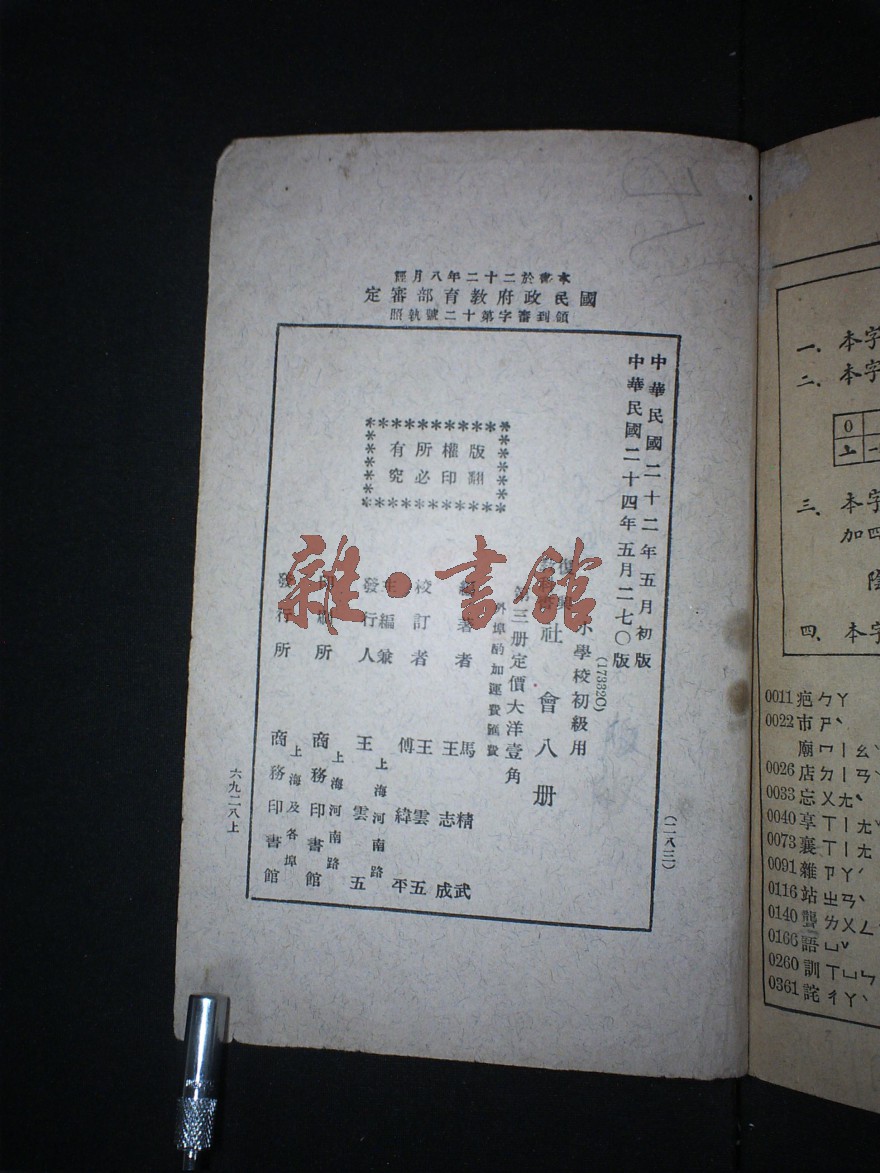 本書於二十二年八月經
國民政府教育部審定
領到審字第十二號執照
中華民國二十二年五月初版
中華民國二十四年五月二七〇版
(二八三)
(17332O)
小學校初級用
復興
教科書
社會八册
第三册定價大洋壹角
外埠酌加運費匯費
版權所有
翻印必究
編著者
馬精武
王志成
校訂者
王雲五
傅緯平
主編兼
發行人
上海河南路
王雲五
印刷所
上海河南路
商務印書館
發行所
上海及各埠
商務印書館
六九二八上
雜·書館
一、本字
二、本字
0
三、本字
加四
陰
四、本字
0011疤ㄅㄚ
0022市ㄕˋ
廟ㄇㄧㄠˋ
0026店ㄉㄧㄢˋ
0033忘ㄨㄤˋ
0040享ㄒㄧㄤˇ
0073襄ㄒㄧㄤ
0091雜ㄗㄚˊ
0116站ㄓㄢˋ
0140聾ㄌㄨㄥˊ
0166語ㄩˇ
0260訓ㄒㄩㄣˋ
0361詫ㄔㄚˋ